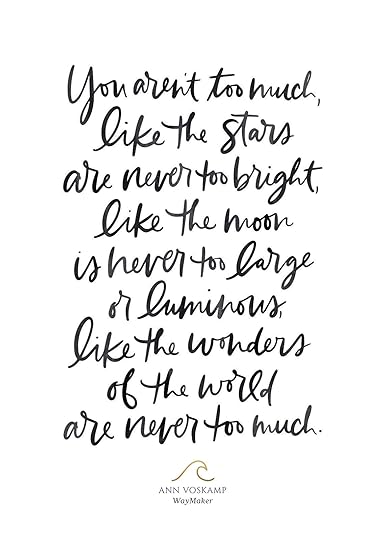 You aren't too much,
like the stars
are never too bright,
like the moon
is never too large
or luminous,
like the wonders
of the world
are never too much.
ANN VOSKAMP
WayMaker